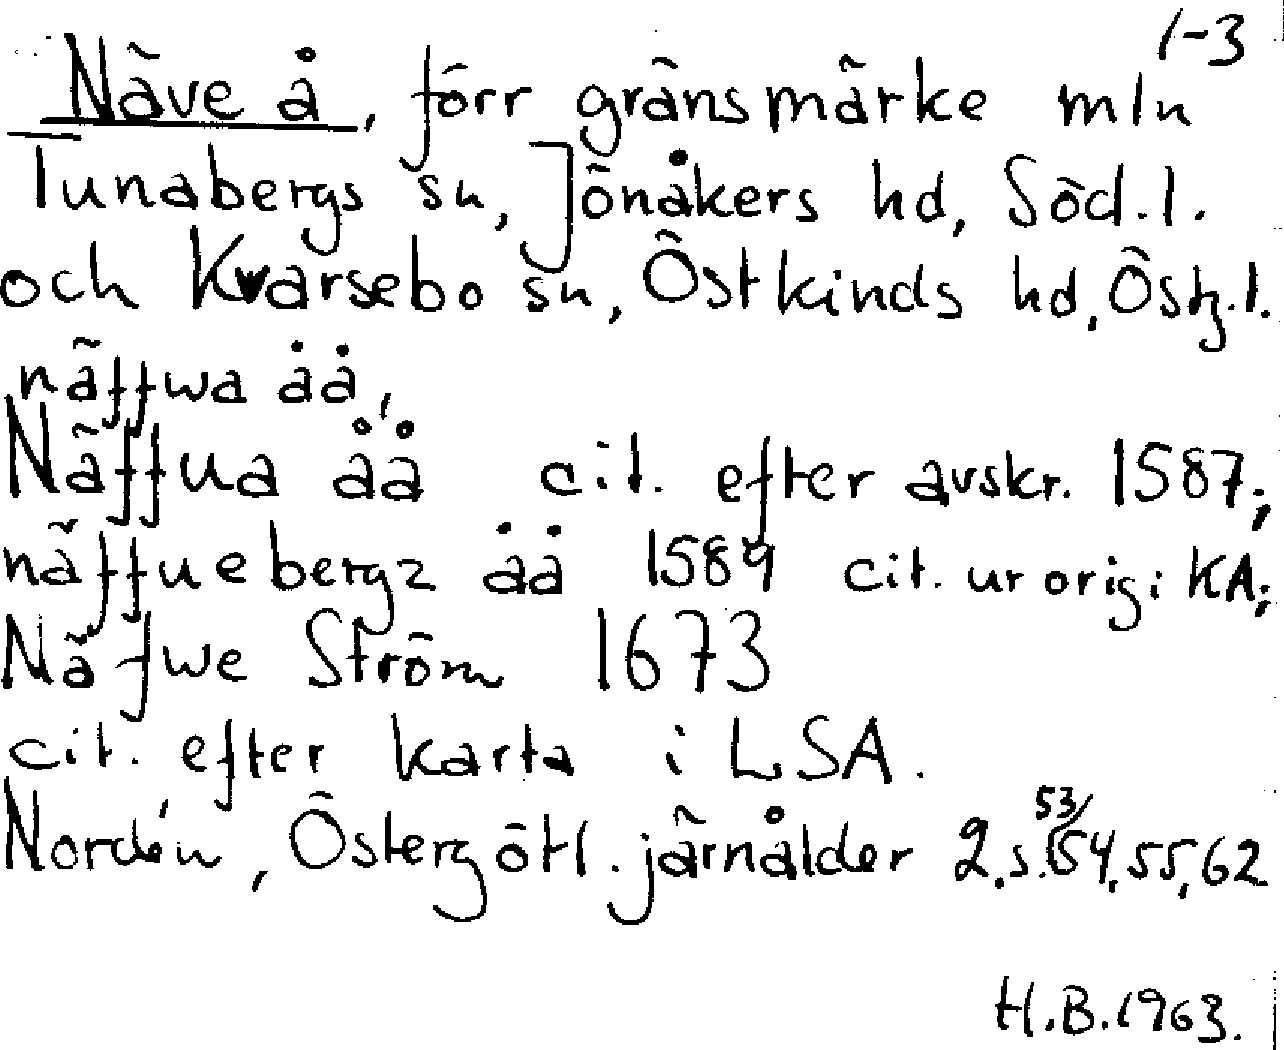 1-3
Näve å, förr gränsmärke mln
Tunabergs sn, Jönåkers hd, Söd.l.
och Kvarsebo sn, Östkinds hd, Östg.l.
näffwa åå,
Näffua åå cit. efter avskr. 1587;
näffuebergz åå 1589 cit. ur orig i KA;
Näfwe Ström 1673
cit. efter karta i LSA.
Nordén, Östergötl. järnålder 2. s. 53/54, 55, 62
H.B. 1963.